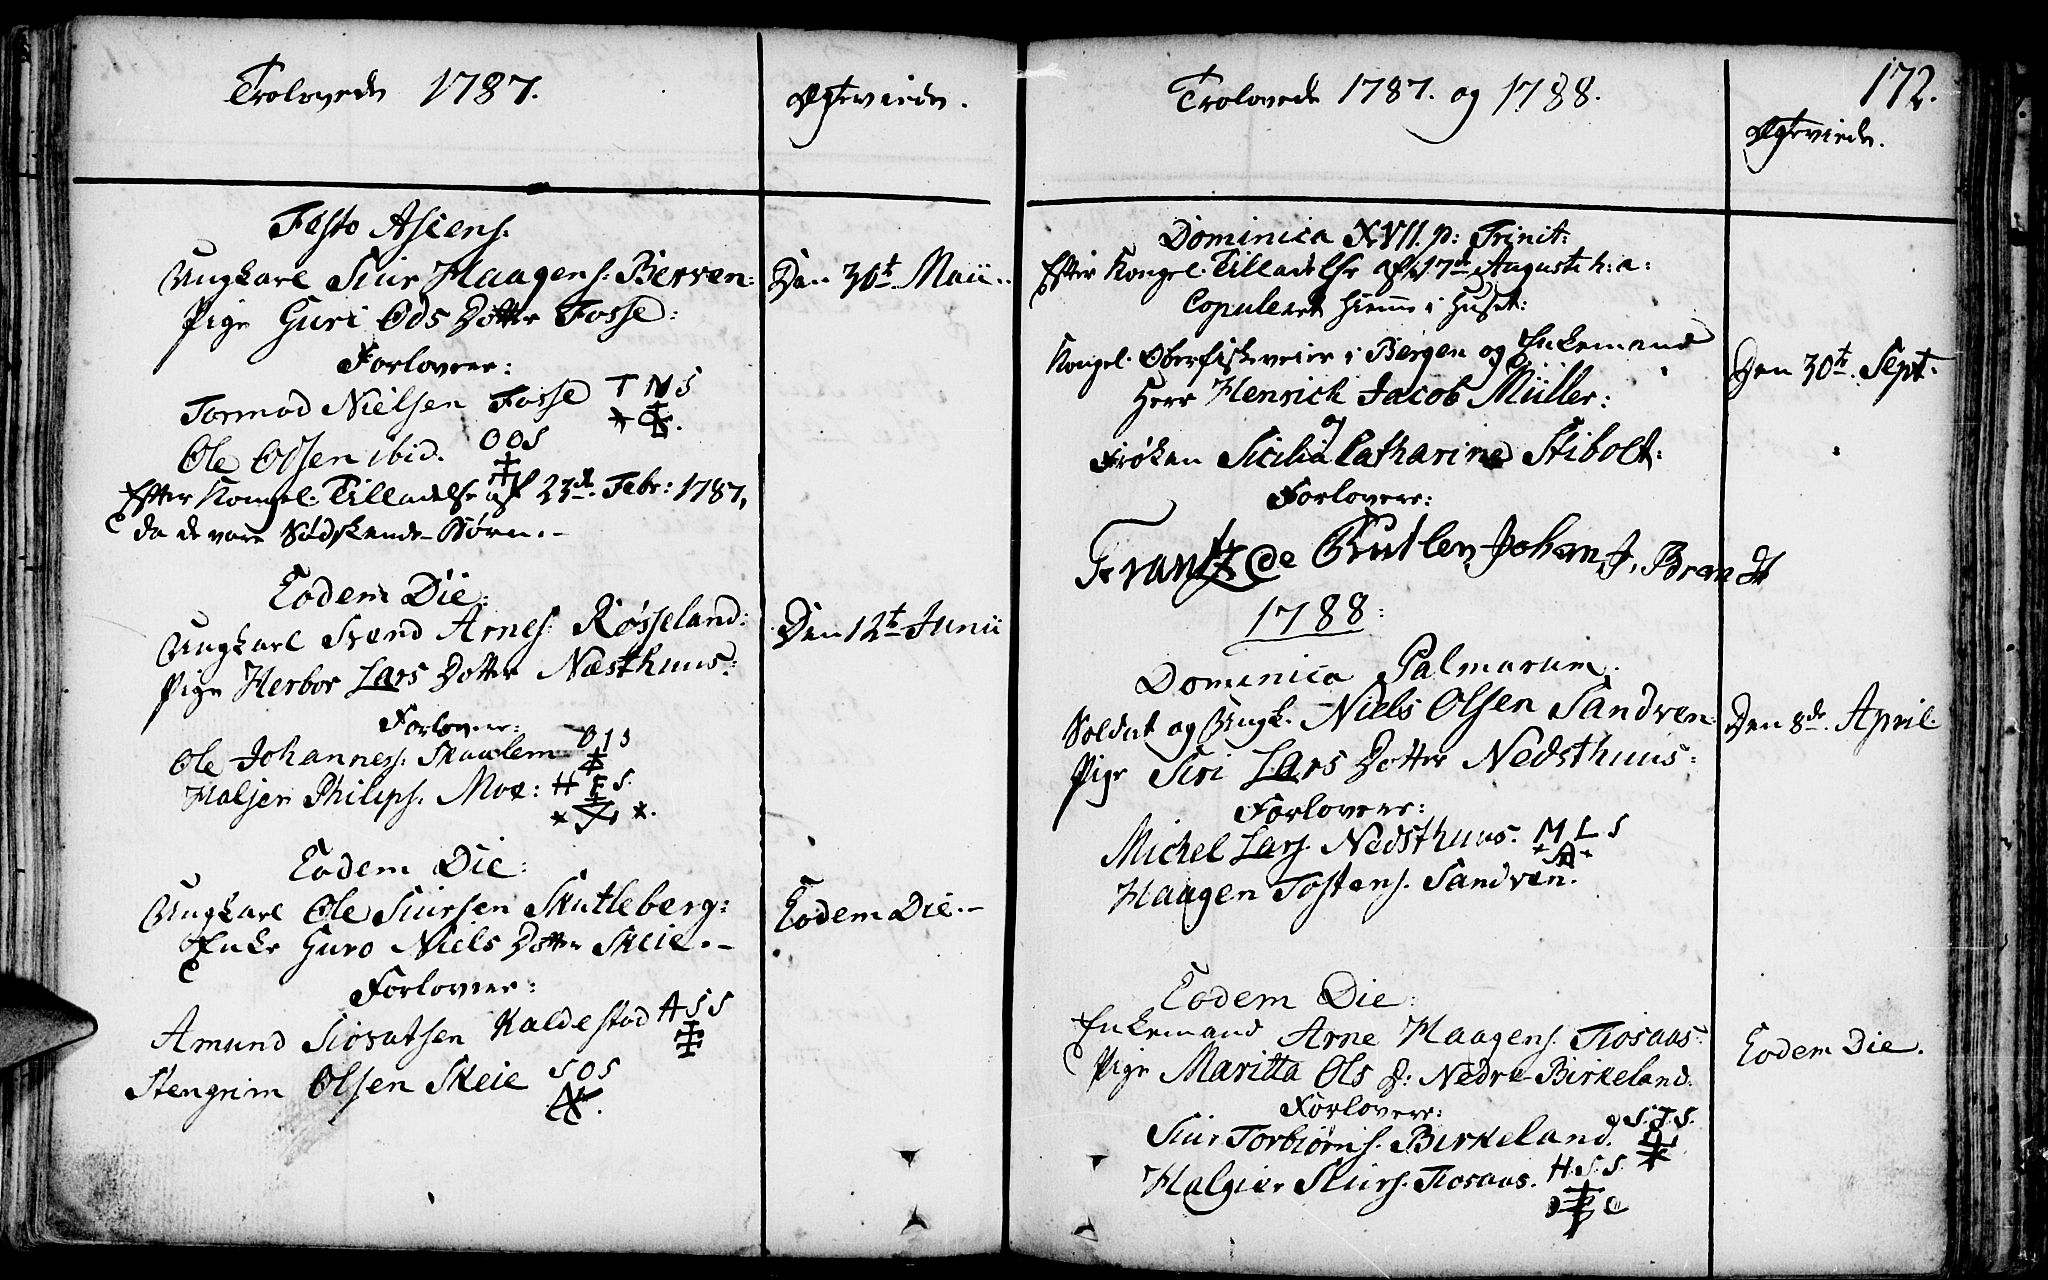 Trolovede 1787.
Ægteviede.
Festo Ascens.
Ungkarl Siur Haagens. Berven:
Den 30te Maii..
Pige Guri Ods Dotter Fosse:
Forlovere:
Tormod Nielsen Fosse T N S
Ole Olsen ibid. O O S
Efter Kongel. Tilladelse af 23de Febr: 1787,
da de vare Södskende-Börn.-
Eodem Die:
Ungkarl Svend Arnes. Røsseland:
Den 12te Junii
Pige Herbor Lars Dotter Næsthuus:
Forlovere:
Ole Johanness. Skaalem O I S
Haljer Philips. Moe: H F S.
Eodem Die:
Ungkarl Ole Siursen Skutleberg:
Eodem Die.-
Enke Guro Niels Dotter Skeie.-
Forlovere:
Amund Siovatsen Kaldestad A S S
Stengrim Olsen Skeie S O S
172.
Trolovede 1787. og 1788.
Ægteviede.
Dominica XVII. p: Trinit:
Efter Kongel. Tilladelse af 17de Augusti h: a:
Copuleret hiemme i Huset:
Kongel. Oberfiskeveier i Bergen og Enkemand
Den 30te Sept.
Herr Henrich Jacob Müller:
og
Frøken Sicilia Catharine Stibolt:
Forlovere:
Frantz de Butler Johan J. Brandt
1788:
Dominica Palmarum.
Soldat og Ungk. Niels Olsen Sandven:
Den 8de April.
Pige Siri Lars Dotter Nedsthuus:
Forlovere:
Michel Lars. Nedsthuus. M L S
Haagen Tostens. Sandven.
Eodem Die:
Enkemand Arne Haagens. Tiosaas:
Eodem Die.
Pige Maritta Ols D: Nedre-Birkeland.
Forlovere:
Siur Torbiörns. Birkeland. S. T. S.
Halgier Siurs. Tiosaas. H. S. S.